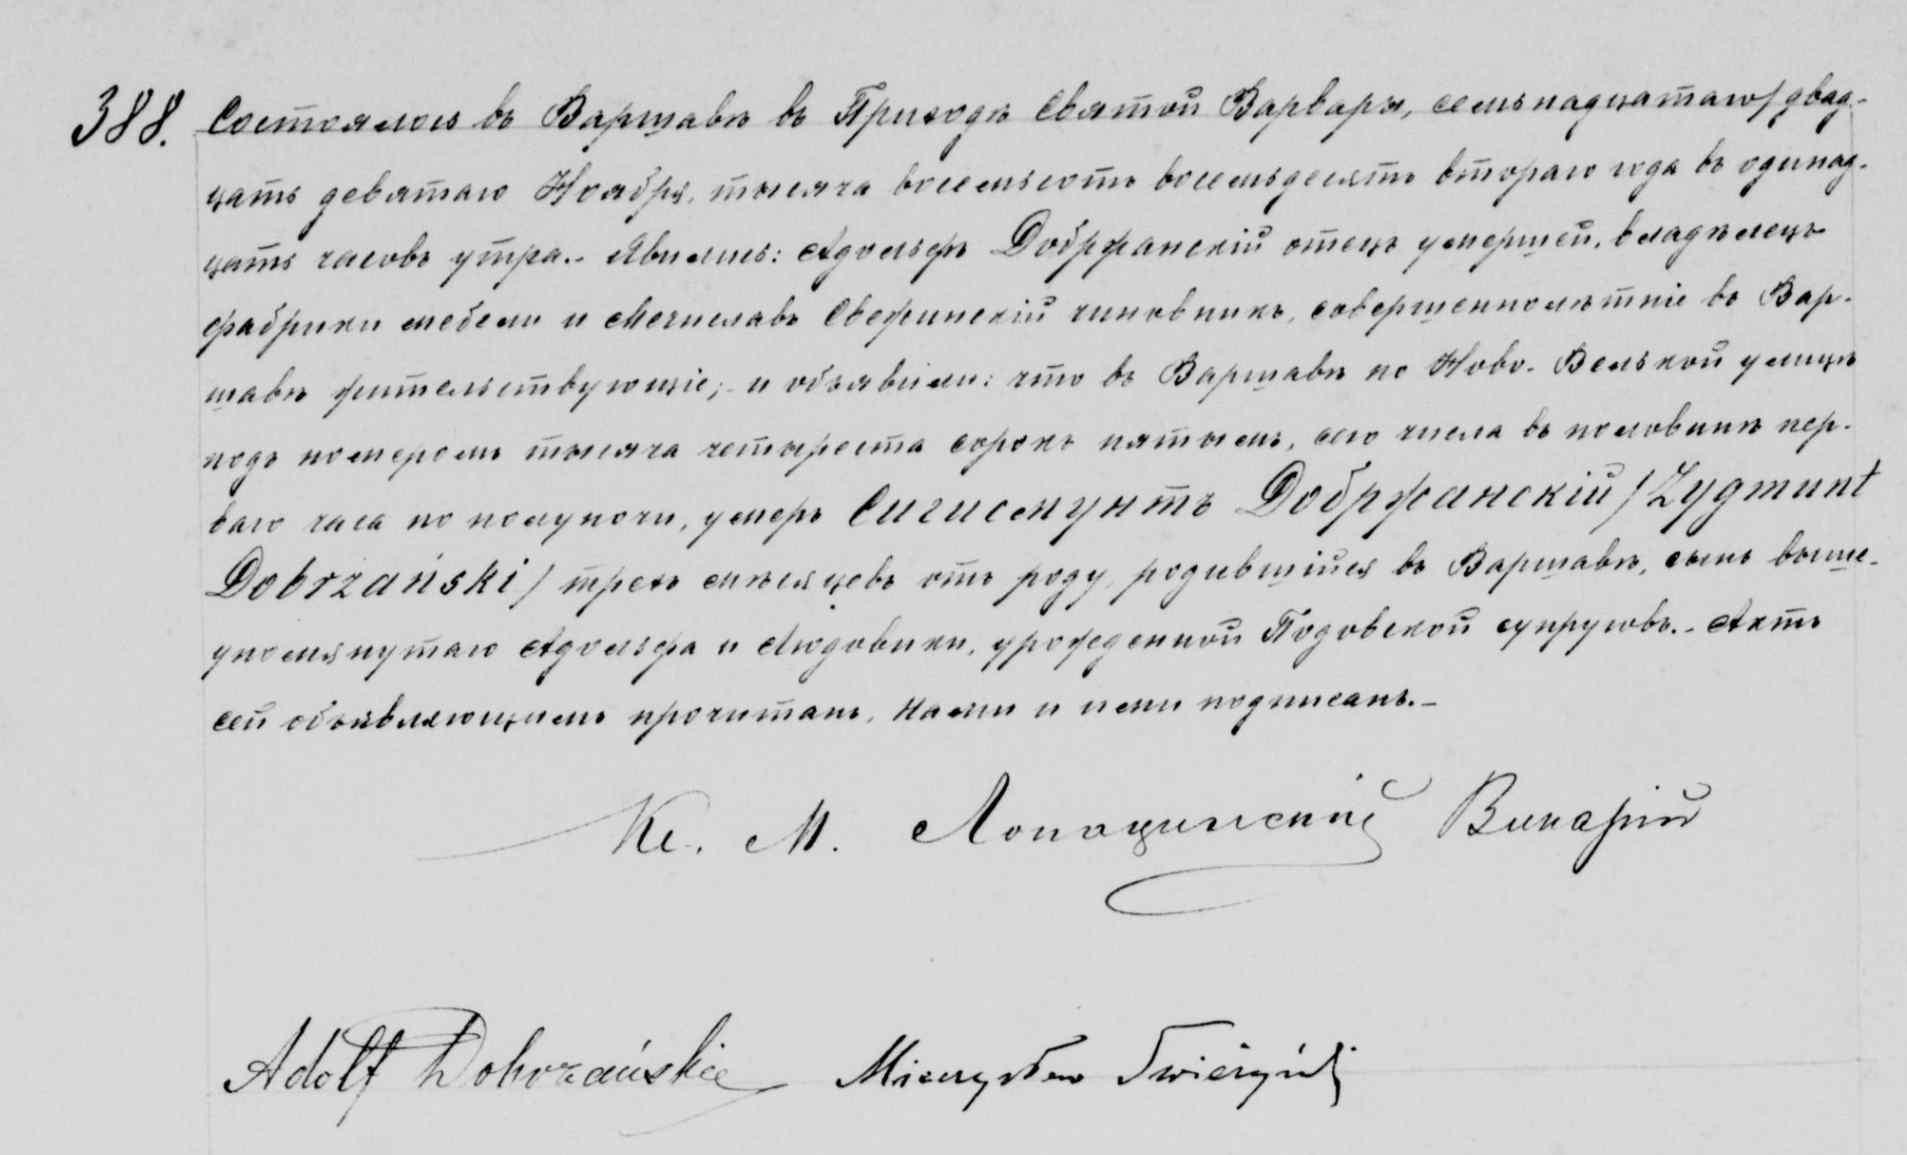 388. Состоялось въ Варшавѣ въ Приходѣ Святой Варвары, семьнадцатаго/двад-
цать девятаго Ноября, тысяча восемьсотъ восемьдесятъ втораго года въ одинад-
цать часовъ утра.- Явились: Адольфъ Добржанскій отецъ умершей, владѣлецъ
фабрики мебели и Мечиславъ чиновникъ, совершеннолѣтніе въ Вар-
шавѣ жительствующіе;- и объявили: что въ Варшавѣ по Ново-Велькой улицѣ
подъ номеромъ тысяча четыреста сорокъ пятымъ, сего числа въ половинѣ пер-
ваго часа по полуночи, умеръ Сигисмунтъ Добржанскій /Zygmunt
Dobrzański/ трехъ мѣсяцевъ отъ роду, родившійся въ Варшавѣ, сынъ выше-
упомянутаго Адольфа и Людовики, урожденной Подовской супруговъ.- Актъ
сей объявляющимъ прочитанъ, нами и ими подписанъ.-
Кс. М. Лопацинскій Викарій
Adolf Dobrzański Mieczysław